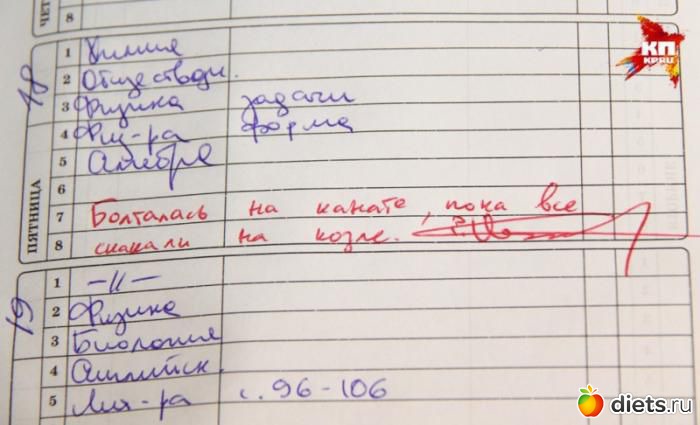 ЧЕТ
8
18
ПЯТНИЦА
1 Химия
2 Обществозн.
3 Физика задачи
4 Физ-ра форма
5 Алгебра
6
7 Болталась на канате, пока все
8 скакали на козле.
19
1 –//–
2 Физика
3 Биология
4 Английск.
5 Лит-ра с. 96-106
КП
diets.ru